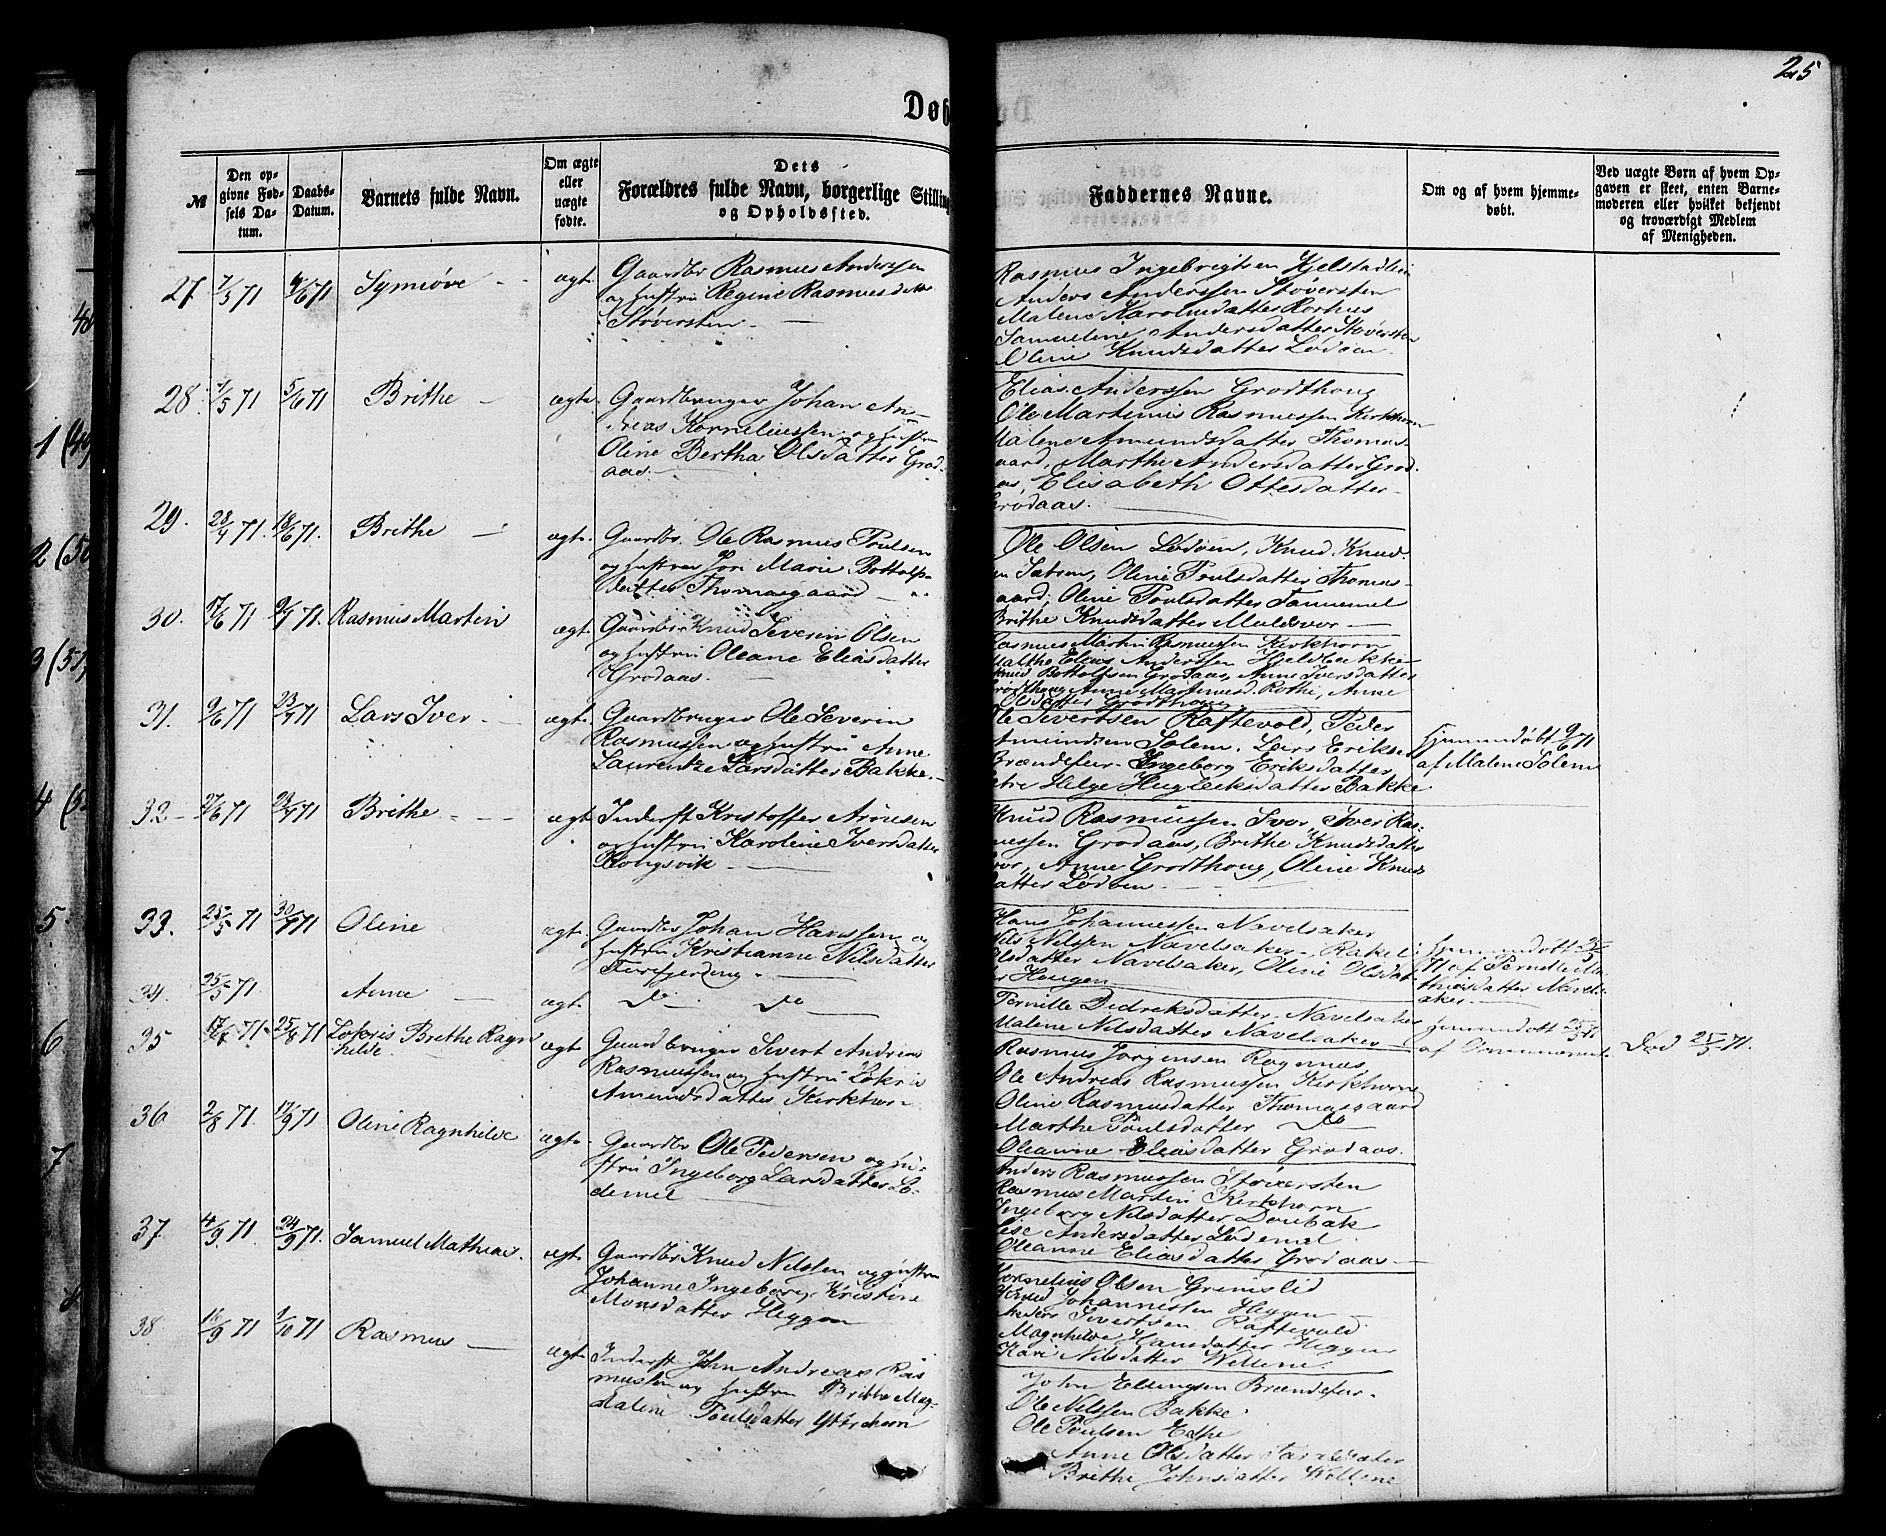 25
Døb
№
Den op-
givne Fød-
sels Da-
tum.
Daabs-
Datum.
Barnets fulde Navn.
Om ægte
eller
uægte
fødte.
Dets
Forældres fulde Navn, borgerlige Stilling
og Opholdssted.
Faddernes Navne.
Om og af hvem hjemme-
døbt.
Ved uægte Børn af hvem Op-
gaven er skeet, enten Barne-
moderen eller hvilket bekjendt
og troværdigt Medlem
af Menigheden.
27. 71 71 Synnøve ægte
Gaardbr Rasmus Anderssen
og hustru Regine Rasmusdtr
Støversten
Rasmus Ingebrigtsen Kjelstadlien
Anders Anderssen Støversten
Malene Karolusdatter Rorhus
Samueline Andersdatter Støversten
Oline Knudsdatter Lødøen
28. 1/5 71 5/6 71 Brithe ægte
Gaardbruger Johan An-
dreas Korneliussen og hustru
Oline Bertha Olsdatter Grod-
aas
Elias Anderssen Grodthoug
Ole Martinus Rasmussen Kirkhorn
Malene Amundsdatter Thomas-
gaard, Marthe Andersdatter Grod-
aas, Elisabeth Ottesdatter
Grodaas
29. 28/4 71. 18/6 71. Brithe ægte
Gaardbr. Ole Rasmus Poulsen
og hustru Jori Marie Bottolfs-
datter Thomasgaard
Ole Olsen Lødøen, Knud Knud-
sen Sætren, Oline Poulsdatter Thomas-
gaard, Oline Poulsdatter Tannemel
Brithe Knudsdatter Muldsvor
30. 17/6 71 9/7 71. Rasmus Martin ægte
Gaardbr Knud Severin Olsen
og hustru Oleane Eliasdatter
Grodaas
Rasmus Martin Rasmussen Kirkhorn
Malthe Elias Anderssen Hjeldbakke
Knud Bottolfsen Grodaas, Anne Iversdatter
Grodthoug, Anne Martinusd. Rothe, Anne
Olsdatter Grodthoug
31. 9/6 71 23/7 71 Lars Iver ægte
Gaardbruger Ole Severin
Rasmussen og hustru Anne
Laurentze Larsdatter Bakke
Ole Sivertsen Raftevold, Peder
Amundsen Solem, Lars Eriksen
Brændefur, Ingeborg Eriksdatter
Helge Hugleiksdatter Bakke
Hjemmedøbt 9/6 71
af Malene Solem
32 27/6 71 23/7 71 Brithe ægte
Inderst Kristoffer Arnesen
og hustru Karoline Iversdatter
Kongsvik
Knud Rasmussen Svor, Iver Ras-
mussen Grodaas, Brithe Knudsdatter
Svor, Anne Grodthoug, Oline Knuds-
datter Lødøen
33. 25/5 71 30/7 71 Oline ægte
Gaardbr Johan Hanssen og
hustru Kristianne Nilsdatter
Torefjerding
Hans Johannessen Navelsaker
Nils Nilssen Navelsaker, Rakel
Olsdatter Navelsaker, Oline Olsdat-
ter Hougen
Hjemmedøbt 25/5
71 af Pernille Ma-
thiasdatter Navels-
aker
34. 25/5 71 Anne ægte
Do Do
Pernille Didreksdatter Navelsaker
Malene Nilsdatter Navelsaker
hjemmedøbt 25/5 71
af
Død 25/5 71.
35 71 25/6 71 Lokris Brithe Ragn-
hilde ægte
Gaardbruger Sivert Andreas
Rasmussen og hustru Lokris
Amundsdatter Kirkhorn
Rasmus Jørgensen Rognnes
Ole Andreas Rasmussen Kirkhorn
Oline Rasmusdatter Thomasgaard
Marthe Poulsdatter Do
Oleanne Eliasdatter Grodaas
36 2/8 71. 17/9 71 Oline Ragnhilde ægte
Gaardbr Ole Pedersen og hu-
stru Ingeborg Larsdatter Lø-
demel
Anders Rasmussen Støversten
Rasmus Martin Kirkhorn
Ingeborg Nilsdatter Doubak
Lise Andersdatter Lødemel
Oleanne Eliasdatter Grodaas
37. 4/9 71 24/9 71. Samuel Mathias ægte
Gaardbr Knud Nilssen og hustru
Johanne Ingeborg Kristine
Monsdatter Heggen
Kornelius Olsen Grimslid
Knud Johannessen Heggen
Peder Sivertsen Raftevold
Magnhilde Hansdatter Heggen
Kari Nilsdatter Wellene
38 16/9 71 1/10 71 Rasmus ægte
Inderst John Andreas Ras-
mussen og hustru Brithe Mag-
dalene Poulsdatter Ytrehorn
John Ellingsen Brændefur
Ole Nilssen Bakke
Ole Poulsen Edhe
Anne Olsdatter
Brithe Johnsdatter Wellene
1 (49
2 (50
3 (51
4 (52
5
6
7